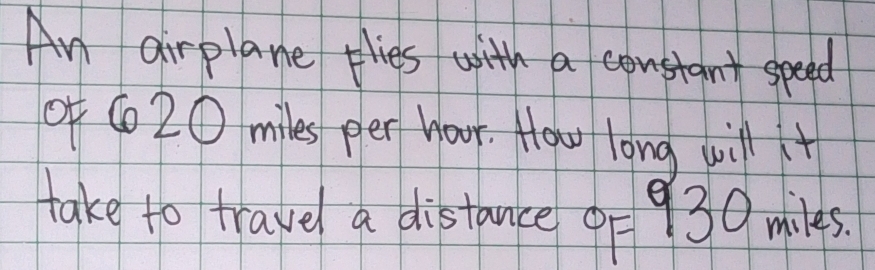 An airplane flies with a constant speed
of 620 miles per hour. How long will it
take to travel a distance of 930 miles.